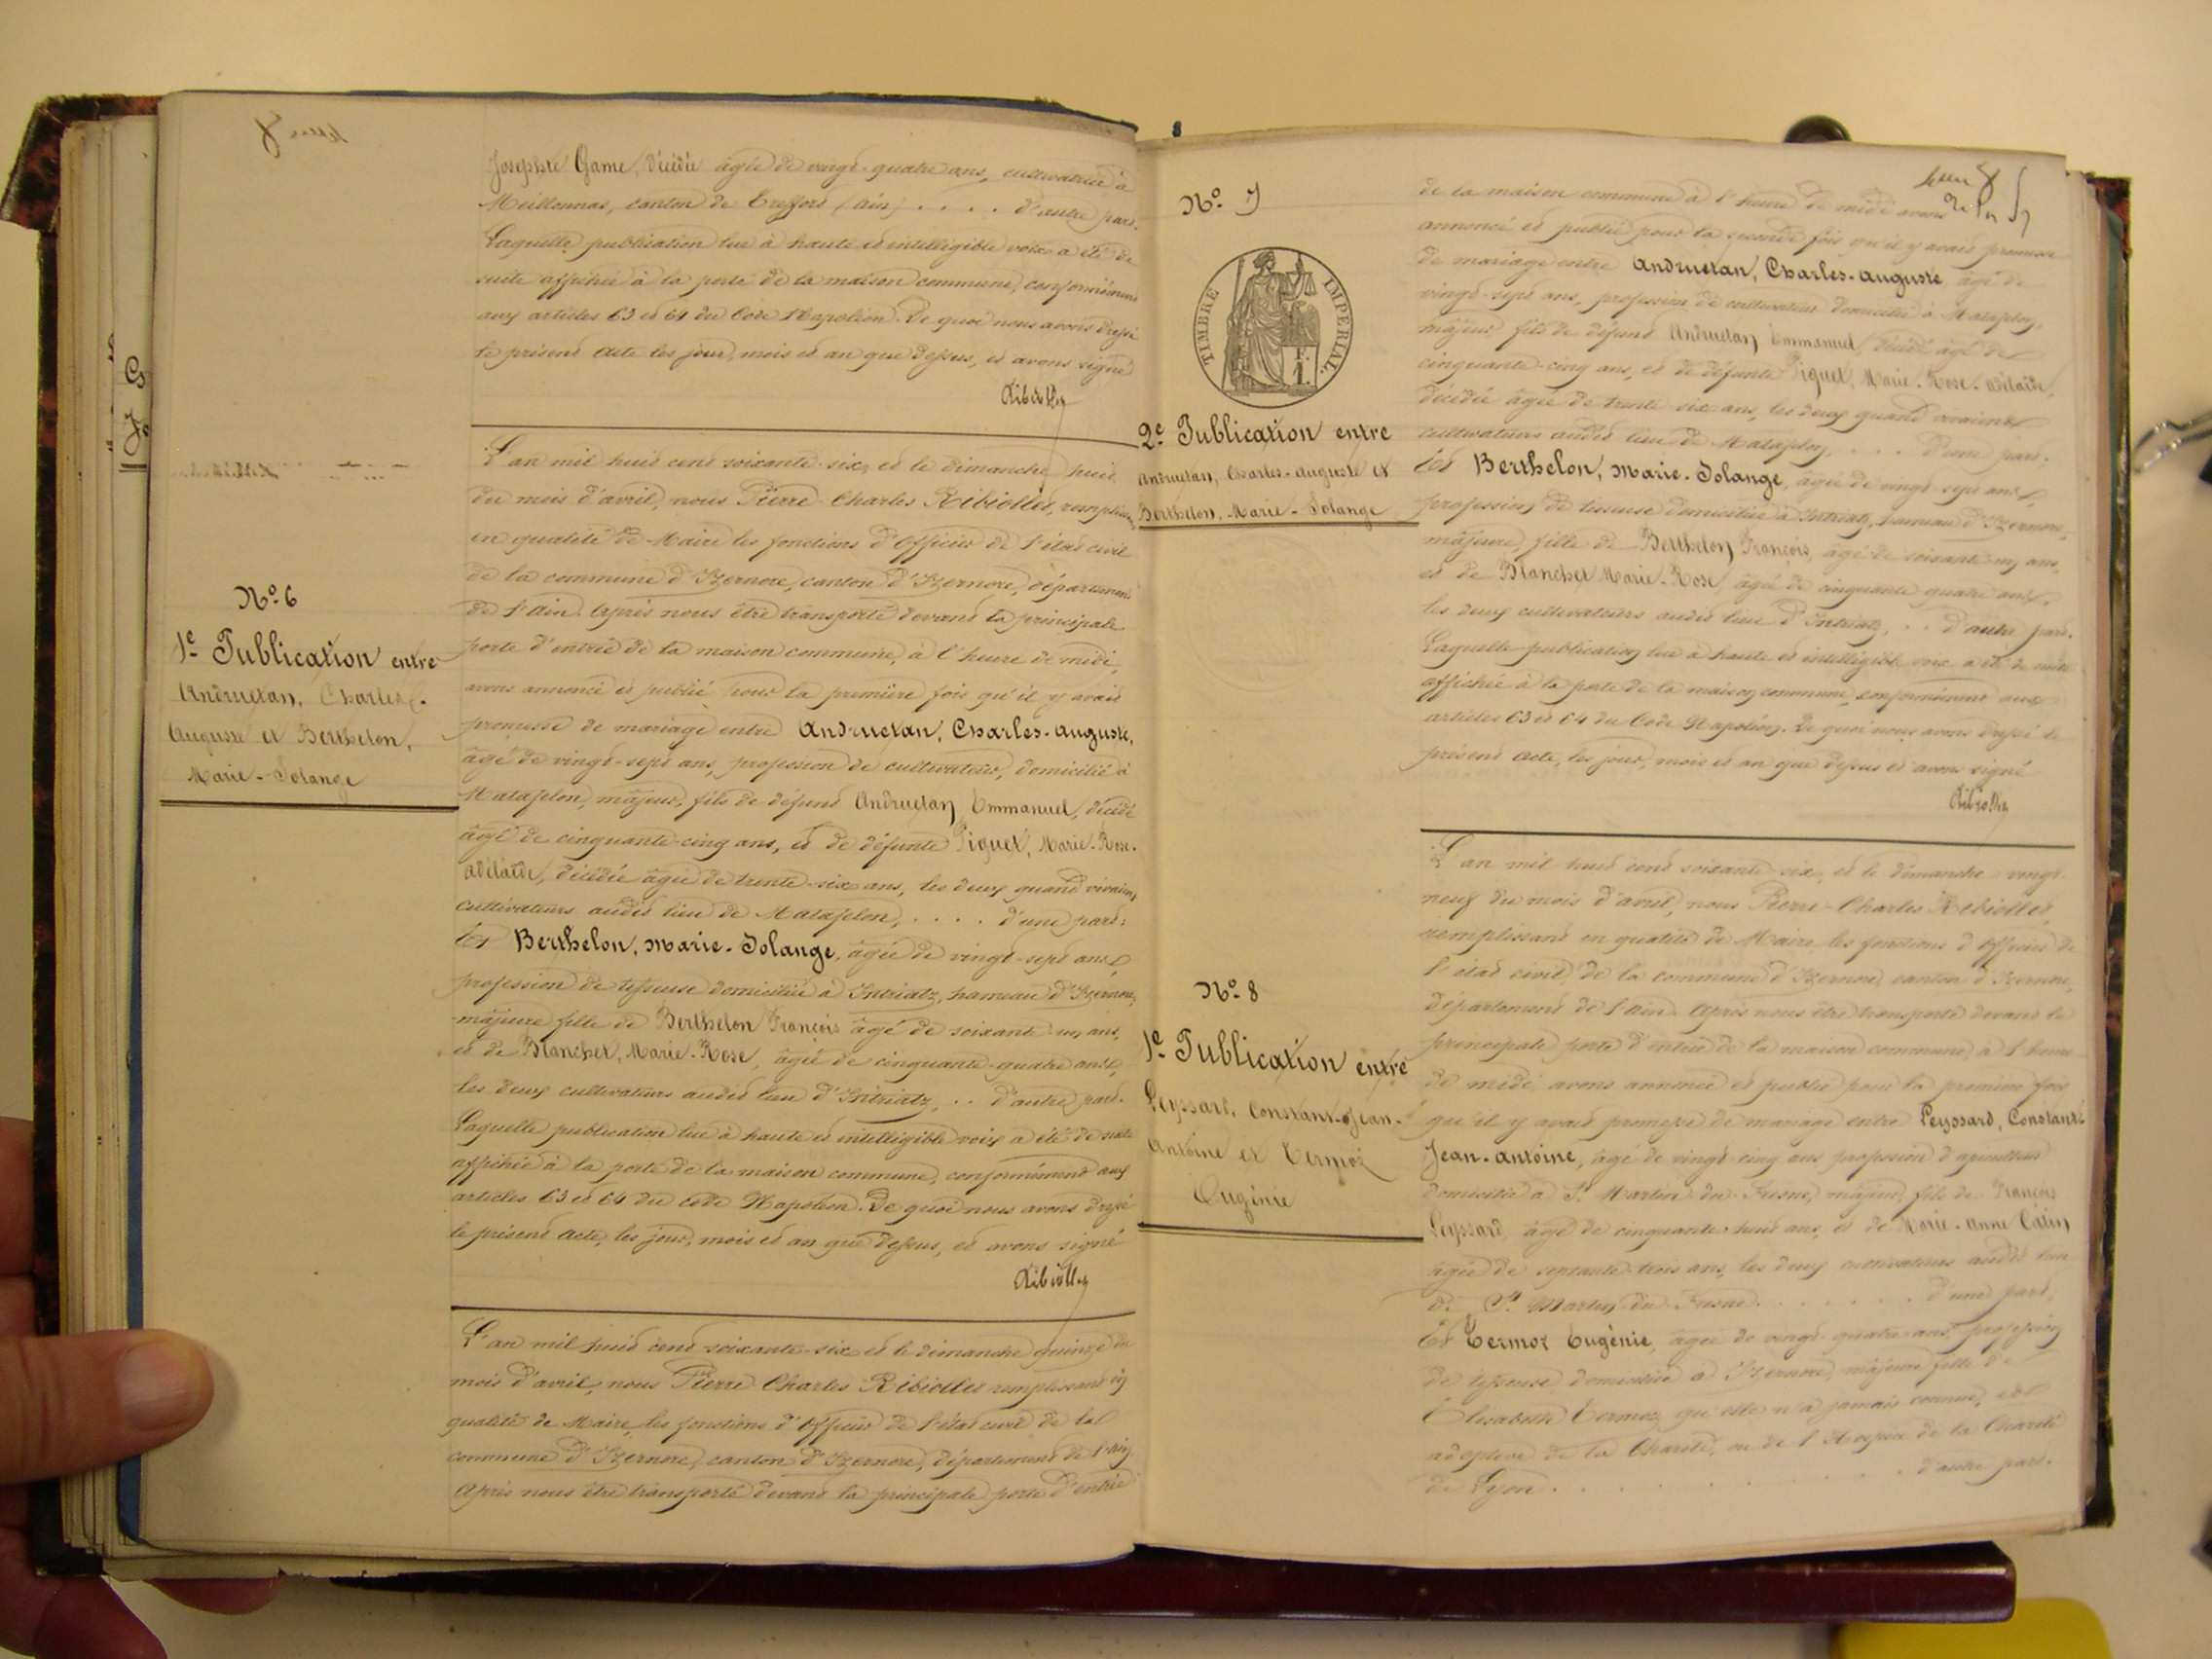 Josephte Game, décédée âgée de vingt-quatre ans, cultivatrice à
Meillonnas, canton de Treffort (Ain) . . . . d'autre part.
Laquelle publication lue à haute et intelligible voix a été de
suite affichée à la porte de la maison commune, conformément
aux articles 63 et 64 du Code Napoléon. De quoi nous avons dressé
le présent acte les jour, mois et an que dessus, et avons signé
Ribiollet
N° 6
1e Publication entre
Andruetan, Charles-
Auguste et Berthelon,
Marie-Solange
L'an mil huit cent soixante-six, et le dimanche huit
du mois d'avril, nous Pierre-Charles Ribiollet, remplissant
en qualité de Maire les fonctions d'officier de l'état civil
de la commune d'Izernore, canton d'Izernore, département
de l'Ain. Après nous être transporté devant la principale
porte d'entrée de la maison commune, à l'heure de midi,
avons annoncé et publié pour la première fois qu'il y avait
promesse de mariage entre Andruetan, Charles-Auguste,
âgé de vingt-sept ans, profession de cultivateur, domicilié à
Matafelon, majeur, fils de défunt Andruetan Emmanuel, décédé
âgé de cinquante-cinq ans, et de défunte Piquet, Marie-Rose-
Adélaïde, décédée âgée de trente-six ans, les deux quand vivaient
cultivateurs audit lieu de Matafelon, . . . . d'une part;
Et Berthelon, Marie-Solange, âgée de vingt-sept ans,
profession de tisseuse domiciliée à Intriatz, hameau d'Izernore,
majeure fille de Berthelon François âgé de soixante-un ans,
et de Blanchet, Marie-Rose, âgée de cinquante-quatre ans,
les deux cultivateurs audit lieu d'Intriatz, . . d'autre part.
Laquelle publication lue à haute et intelligible voix a été de suite
affichée à la porte de la maison commune, conformément aux
articles 63 et 64 du code Napoléon. De quoi nous avons dressé
le présent acte, les jour, mois et an que dessus, et avons signé
Ribiollet
L'an mil huit cent soixante-six et le dimanche quinze du
mois d'avril, nous Pierre Charles Ribiollet remplissant en
qualité de Maire les fonctions d'officier de l'état civil de la
commune d'Izernore, canton d'Izernore, département de l'Ain
Après nous être transporté devant la principale porte d'entrée
N° 7
TIMBRE IMPERIAL
2e Publication entre
Andruetan, Charles-Auguste et
Berthelon, Marie-Solange
de la maison commune à l'heure de midi avons
annoncé et publié pour la seconde fois qu'il y avait promesse
de mariage entre Andruetan, Charles-Auguste âgé de
vingt-sept ans, profession de cultivateur domicilié à Matafelon,
majeur fils de défunt Andruetan Emmanuel, décédé âgé de
cinquante-cinq ans, et de défunte Piquet, Marie-Rose-Adélaïde,
décédée âgée de trente-six ans, les deux quand vivaient
cultivateurs audit lieu de Matafelon, . . . d'une part;
Et Berthelon, Marie-Solange, âgée de vingt-sept ans,
profession de tisseuse domiciliée à Intriatz, hameau d'Izernore,
majeure, fille de Berthelon François, âgé de soixante-un ans,
et de Blanchet Marie-Rose, âgée de cinquante-quatre ans,
les deux cultivateurs audit lieu d'Intriatz, . . d'autre part.
Laquelle publication lue à haute et intelligible voix a été de suite
affichée à la porte de la maison commune, conformément aux
articles 63 et 64 du Code Napoléon. De quoi nous avons dressé le
présent acte, les jour, mois et an que dessus et avons signé
Ribiollet
N° 8
1e Publication entre
Leyssard, Constant-Jean-
Antoine et Termoz
Eugénie
L'an mil huit cent soixante-six, et le dimanche vingt-
neuf du mois d'avril, nous Pierre-Charles Ribiollet,
remplissant en qualité de Maire les fonctions d'officier de
l'état civil de la commune d'Izernore, canton d'Izernore,
département de l'Ain. Après nous être transporté devant la
principale porte d'entrée de la maison commune, à l'heure
de midi avons annoncé et publié pour la première fois
qu'il y avait promesse de mariage entre Leyssard, Constant-
Jean-Antoine, âgé de vingt-cinq ans profession
domicilié à St Martin-du-Fresne, majeur, fils de François
Leyssard, âgé de cinquante-huit ans, et de Marie-Anne
âgée de septante-trois ans, les deux cultivateurs audit lieu
de St Martin-du-Fresne. . . . . . . d'une part,
Et Termoz Eugénie, âgée de vingt-quatre ans, profession
de tisseuse, domiciliée à Izernore, majeure, fille de
Elisabeth Termoz, qu'elle n'a jamais connue, et
adoptive de la Charité, ou de l'Hospice de la Charité
de Lyon . . . . . . . . d'autre part.